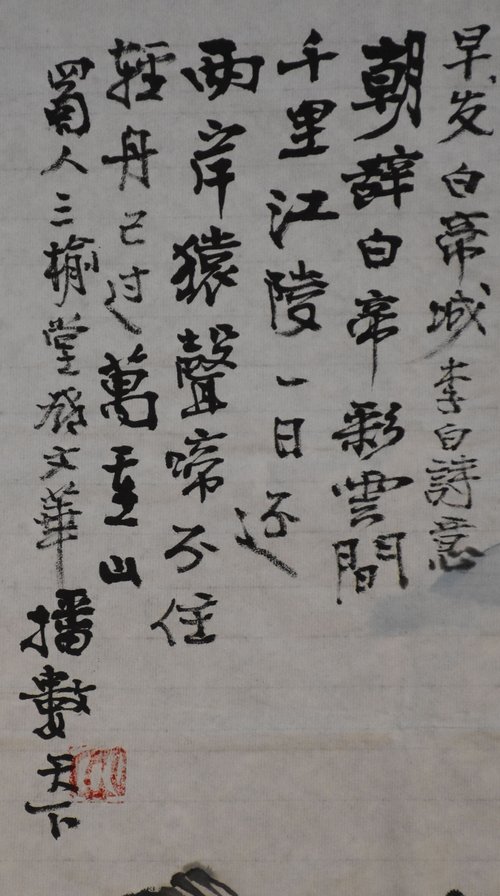 早发白帝城李白詩意
朝辞白帝彩雲間
千里江陵一日还
两岸猿聲啼不住
輕舟已过萬重山
蜀人三榆堂邓文華播數天下